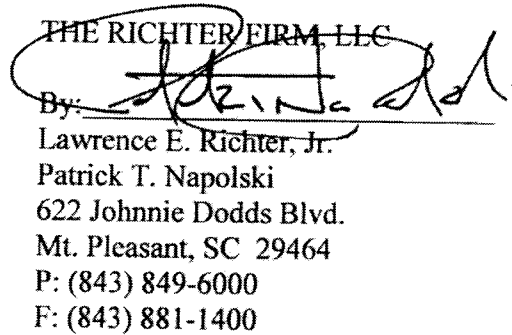 THE RICHTER FIRM, LLC
By:
Lawrence E. Richter, Jr.
Patrick T. Napolski
622 Johnnie Dodds Blvd.
Mt. Pleasant, SC 29464
P: (843) 849-6000
F: (843) 881-1400